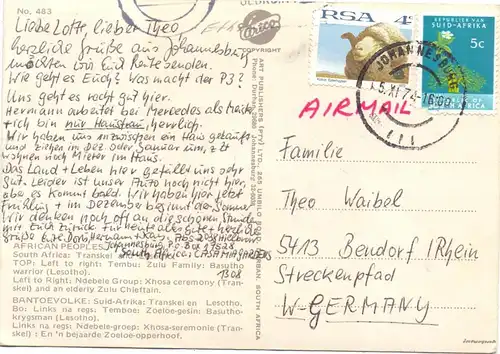 No. 483
Liebe Lotte, lieber Theo
herzliche Grüße aus Johannesburg
möchten wir Euch Beide senden.
Wie geht es Euch? Was macht der P3?
Uns geht es recht gut hier.
Hermann arbeitet bei Mercedes als
ich bin nur Hausfrau, herrlich.
Wir haben uns inzwischen ein Haus gekauft
und ziehen im Dez. oder Januar um, z.Zt
wohnen noch Mieter im Haus.
Das Land + Leben hier gefällt uns sehr
gut. Leider ist unser Auto noch nicht hier,
aber es kommt bald. Wir haben hier jetzt
Frühling + im Dezember beginnt der Sommer
Wir denken noch oft an die schönen Stunden
mit Euch zurück. Für heute alles Gute + herzliche
Grüße Eure Hermann +
Johannesburg P.O. Box
South Africa, CASA MIA GARDENS
AFRICAN PEOPLES
South Africa: Transkei
TOP: Left to right: Tembu: Zulu Family: Basutho
warrior (Lesotho).
Left to Right: Ndebele Group: Xhosa ceremony (Transkei)
and an elderly Zulu Chieftain.
BANTOEVOLKE: Suid-Afrika: Transkei en Lesotho.
Bo: Links na regs: Temboe: Zoeloe-gesin: Basutho-
krygsman (Lesotho).
Links na regs: Ndebele-groep: Xhosa-seremonie (Tran-
skei) : En 'n bejaarde Zoeloe-opperhoof.
COPYRIGHT
ART PUBLISHERS (PTY) LTD.
RSA 4c
REPUBLIEK VAN
SUID-AFRIKA
5c
REPUBLIC OF
SOUTH AFRICA
JOHANNESBURG
AIRMAIL
Familie
Theo Waibel
5413 Bendorf/Rhein
Streckenpfad
W-GERMANY